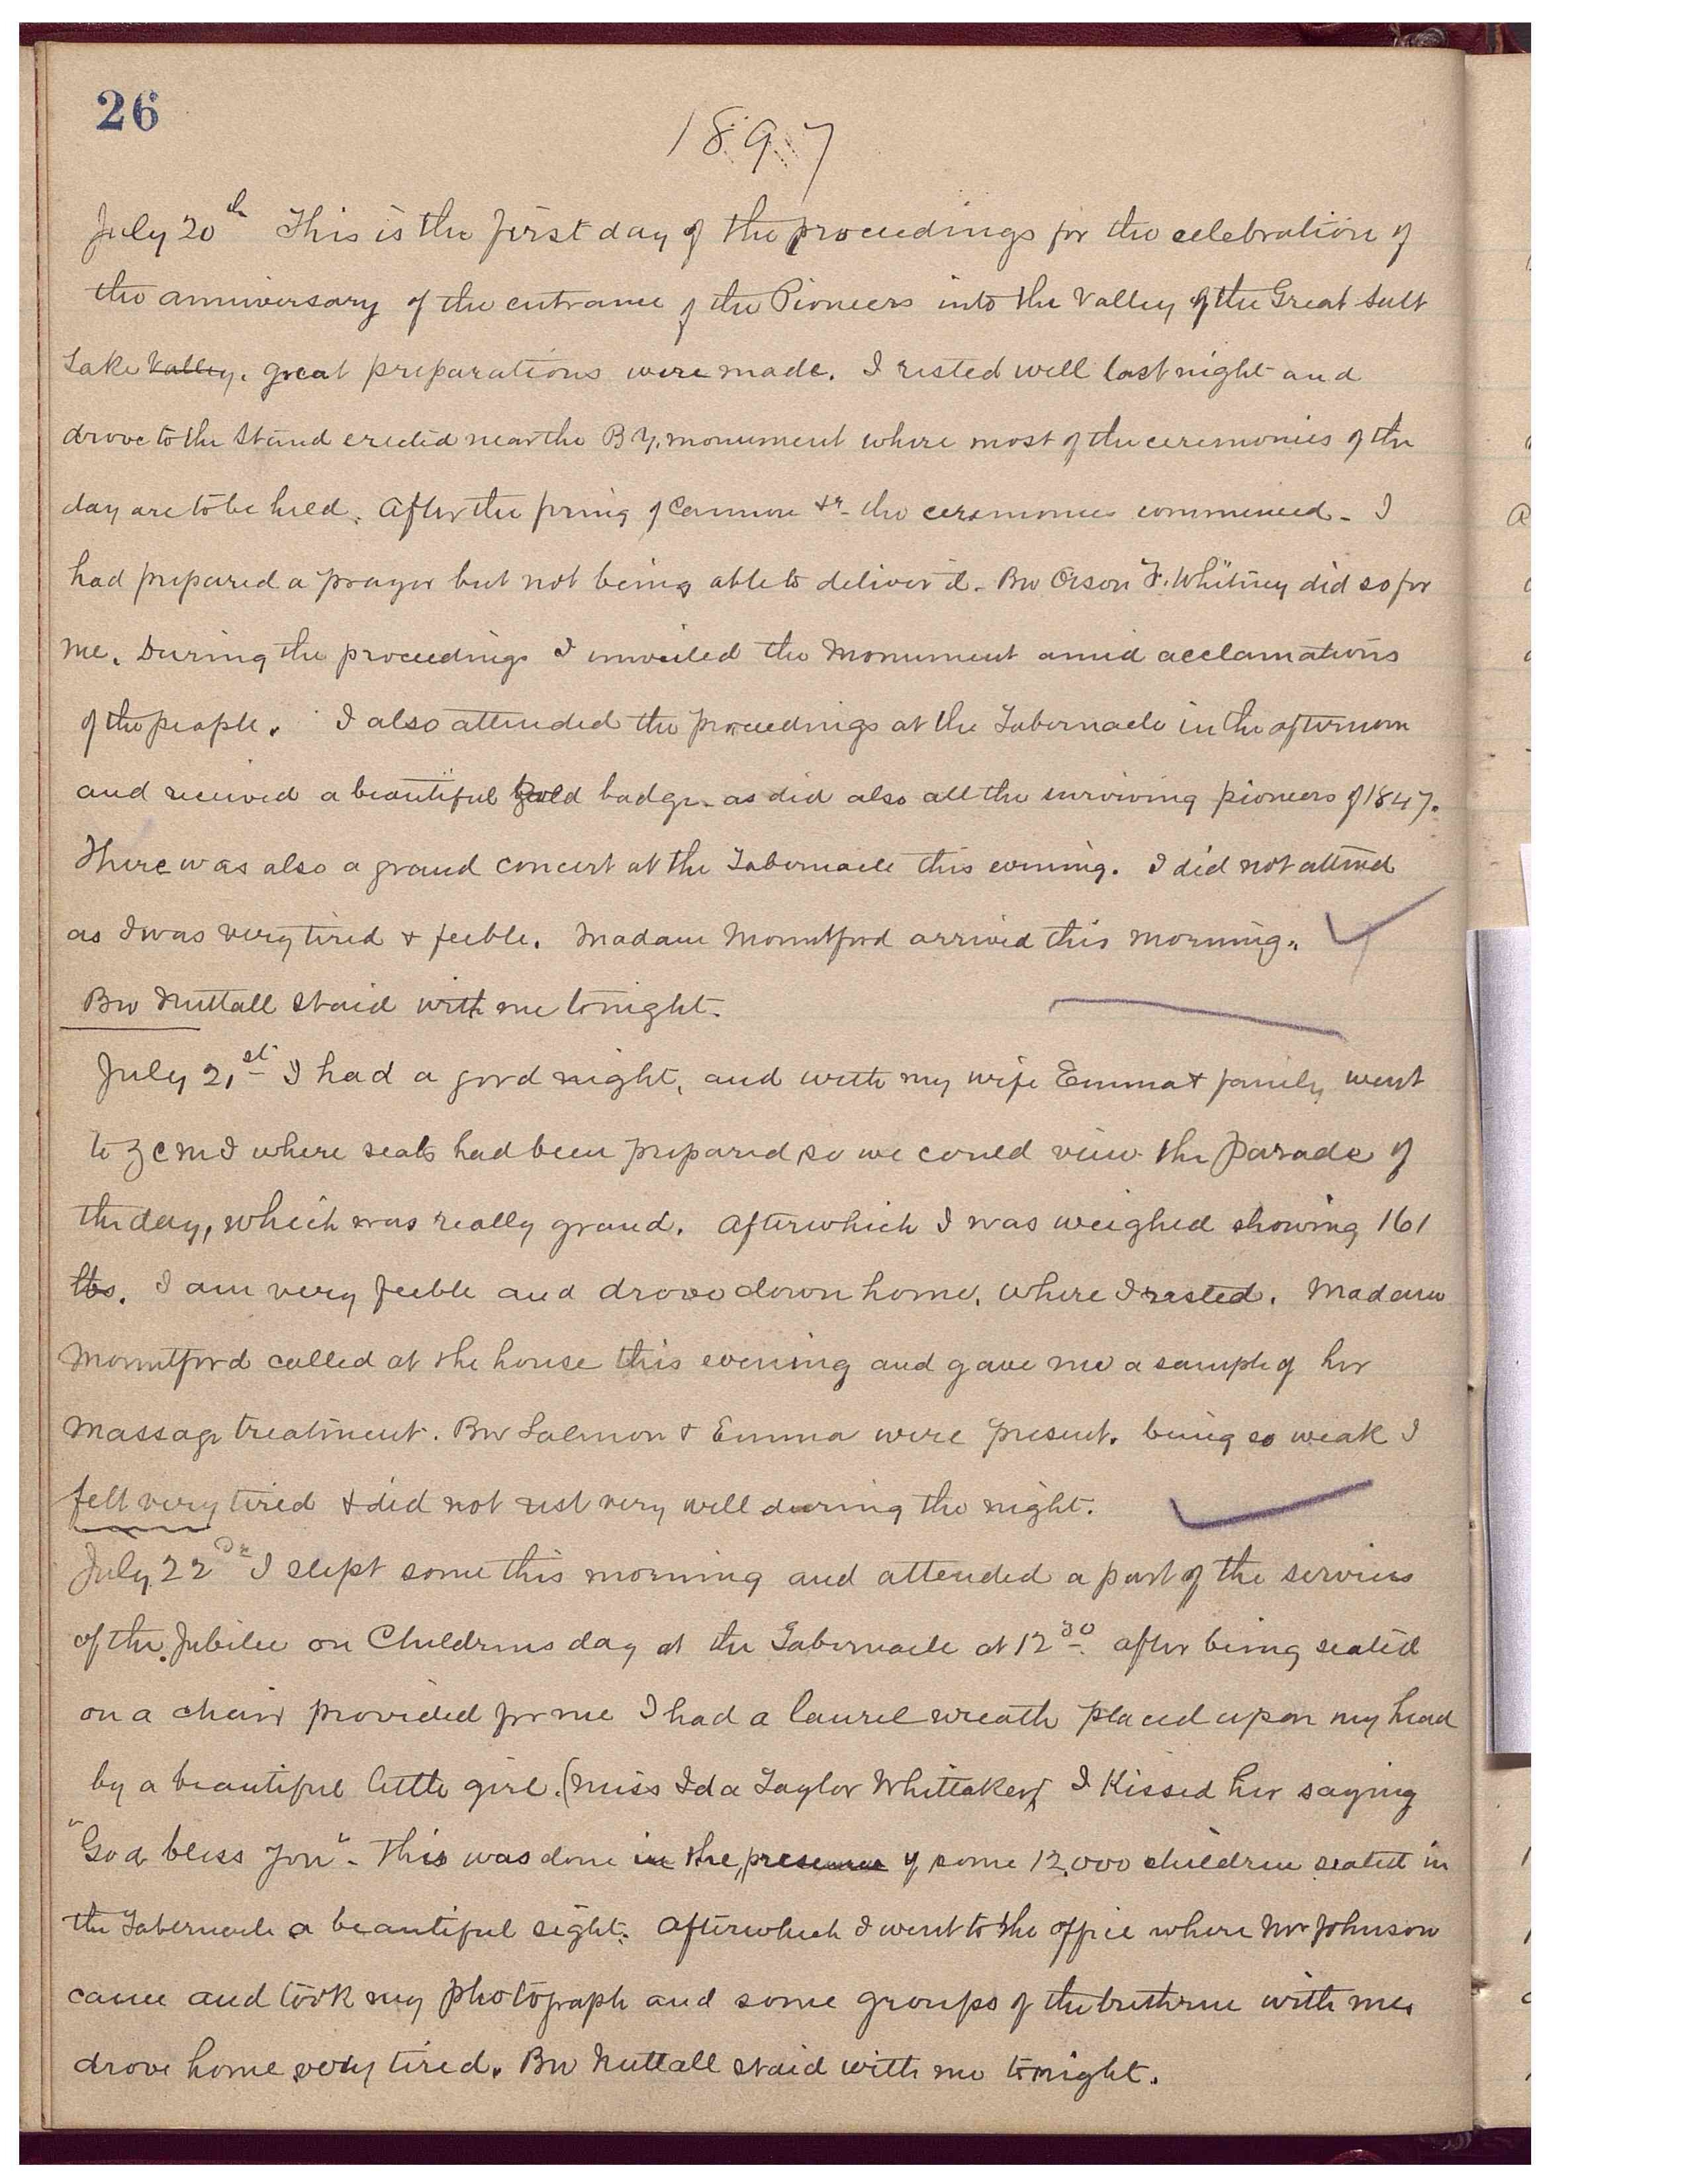 26
1897
July 20th This is the first day of the proceedings for the celebration of
the anniversary of the entrance of the Pioneers into the Valley of the Great Salt
Lake Valley. great preparations were made. I rested well last night and
drove to the Stand erected near the B Y. monument where most of the ceremonies of the
day are to be held. After the firing of Cannon &c the ceremonies commenced - I
had prepared a prayer but not being able to deliver it - Bro Orson F. Whitney did so for
me. During the proceedings I unveiled the Monument amid acclamations
of the people. I also attended the proceedings at the Tabernacle in the afternoon
and received a beautiful gold badge - as did also all the surviving pioneers of 1847.
There was also a grand concert at the Tabernacle this evening. I did not attend
as I was very tired & feeble. Madam Mountford arrived this morning.
Bro Nuttall staid with me tonight.
July 21st I had a good night, and with my wife Emma & family went
to Z C M I where seats had been prepared so we could view the parade of
the day, which was really grand. Afterwhich I was weighed showing 161
lbs. I am very feeble and drove down home, where I rested. Madam
Mountford called at the house this evening and gave me a sample of her
massage treatment. Bro Salmon & Emma were present. being so weak I
felt very tired & did not rest very well during the night.
July 22nd I slept some this morning and attended a part of the services
of the Jubilee on Childrens day at the Tabernacle at 12 30 after being seated
on a chair provided for me I had a laurel wreath placed upon my head
by a beautiful little girl. (Miss Ida Taylor Whittaker) I Kissed her saying
"God bless you" - This was done in the presence of some 12,000 children seated in
the Tabernacle a beautiful sight. Afterwhich I went to the office where Mr Johnson
came and took my photograph and some groups of the brethren with me.
drove home very tired. Bro Nuttall staid with me tonight.